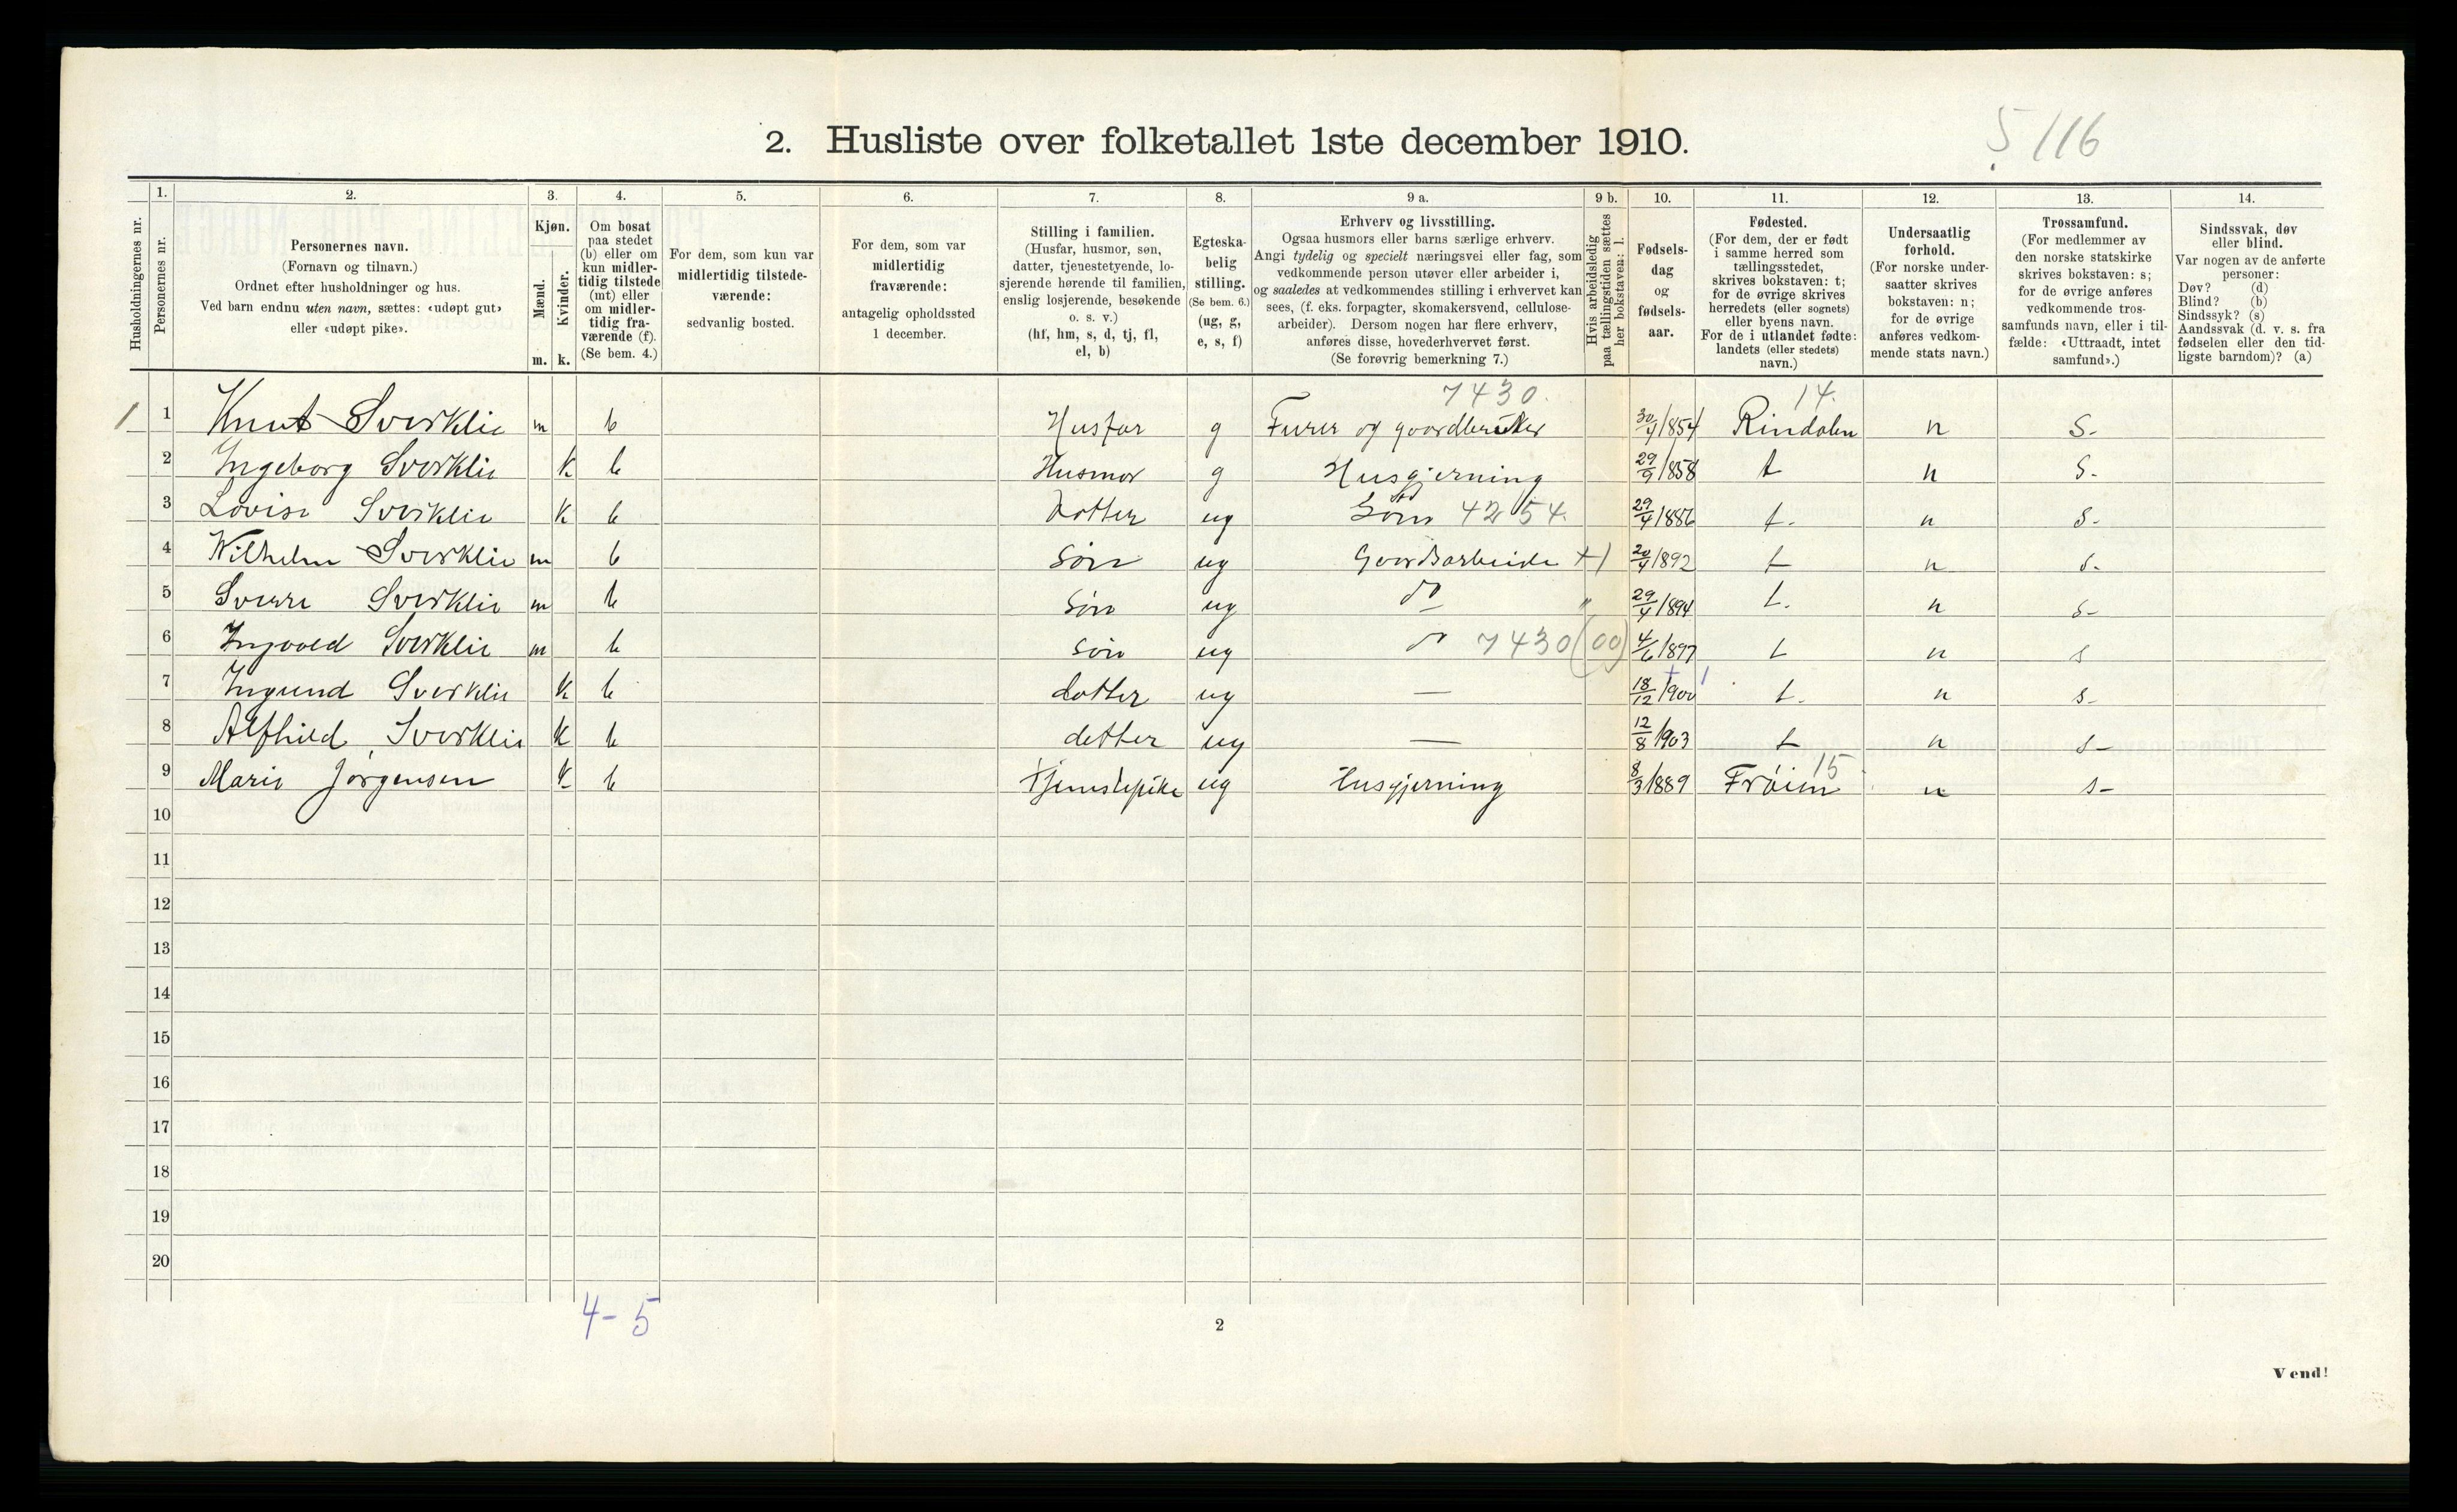 2. Husliste over folketallet 1ste december 1910.
5/116
Husholdningernes nr.
1.
Personernes nr.
2.
Personernes navn.
(Fornavn og tilnavn.)
Ordnet efter husholdninger og hus.
Ved barn endnu uten navn, sættes: «udøpt gut»
eller «udøpt pike».
3.
Kjøn.
Mænd.
Kvinder.
m. k.
4.
Om bosat
paa stedet
(b) eller om
kun midler-
tidig tilstede
(mt) eller
om midler-
tidig fra-
værende (f).
(Se bem. 4.)
5.
For dem, som kun var
midlertidig tilstede-
værende:
sedvanlig bosted.
6.
For dem, som var
midlertidig
fraværende:
antagelig opholdssted
1 december.
7.
Stilling i familien.
(Husfar, husmor, søn,
datter, tjenestetyende, lo-
sjerende hørende til familien,
enslig losjerende, besøkende
o. s. v.)
(hf, hm, s, d, tj, fl,
el, b)
8.
Egteska-
belig
stilling.
(Se bem. 6.)
(ug, g,
e, s, f)
9 a.
Erhverv og livsstilling.
Ogsaa husmors eller barns særlige erhverv.
Angi tydelig og specielt næringsvei eller fag, som
vedkommende person utøver eller arbeider i,
og saaledes at vedkommendes stilling i erhvervet kan
sees, (f. eks. forpagter, skomakersvend, cellulose-
arbeider). Dersom nogen har flere erhverv,
anføres disse, hovederhvervet først.
(Se forøvrig bemerkning 7.)
9 b.
Hvis arbeidsledig
paa tællingstiden sættes
her bokstaven: l.
10.
Fødsels-
dag
og
fødsels-
aar.
11.
Fødested.
(For dem, der er født
i samme herred som
tællingsstedet,
skrives bokstaven: t;
for de øvrige skrives
herredets (eller sognets)
eller byens navn.
For de i utlandet fødte:
landets (eller stedets)
navn.)
12.
Undersaatlig
forhold.
(For norske under-
saatter skrives
bokstaven: n;
for de øvrige
anføres vedkom-
mende stats navn.)
13.
Trossamfund.
(For medlemmer av
den norske statskirke
skrives bokstaven: s;
for de øvrige anføres
vedkommende tros-
samfunds navn, eller i til-
fælde: «Uttraadt, intet
samfund».)
14.
Sindssvak, døv
eller blind.
Var nogen av de anførte
personer:
Døv? (d)
Blind? (b)
Sindssyk? (s)
Aandssvak (d. v. s. fra
fødselen eller den tid-
ligste barndom)? (a)
7430. 14.
1 1 Knut Sverklie m b Husfar g Furer og gaardbruker 30/4/1854 Rindalen n S-
2 Ingeborg Sverklie k b Husmor g Husgjerning 29/9/1858 t n S-
3 Lovise Sverklie k b Dotter ug Søm 4254. 29/4/1886 t. n S-
4 Wilhelm Sverklie m b Søn ug Gaardsarbeide +) 20/4/1892 t n S-
5 Sverre Sverklie m b Søn ug do " 29/4/1894 t. n s-
6 Ingvald Sverklie m b søn ug do 7430 (00) 4/6/1897 t n s
7 Ingund Sverklie k b dotter ug — 18/12/1900 t. n s-
8 Alfhild Sverklie k b dotter ug — 12/8/1903 t n s-
15
9 Marie Jørgensen k b Tjenestepike ug Husgjerning 8/3/1889 Frøien n s-
10
11
12
13
14
15
16
17
18
19
20
4-5
2
Vend!